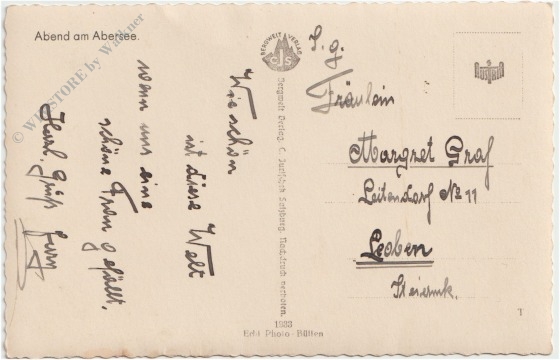 Abend am Abersee.
Wie schön
ist diese Welt
wenn uns eine
schöne Frau gefällt.
Herzl. Grüße
S. g.
Fräulein
Margret Graf
Leitendorf No 11
Leoben
Steiermk.
BERGWELT VERLAG
CJS
Bergwelt Verlag, C. Jurischek Salzburg. Nachdruck verboten.
1933
Echt Photo-Bütten
AUSTRIA
T
© WEBSTORE by Walkner